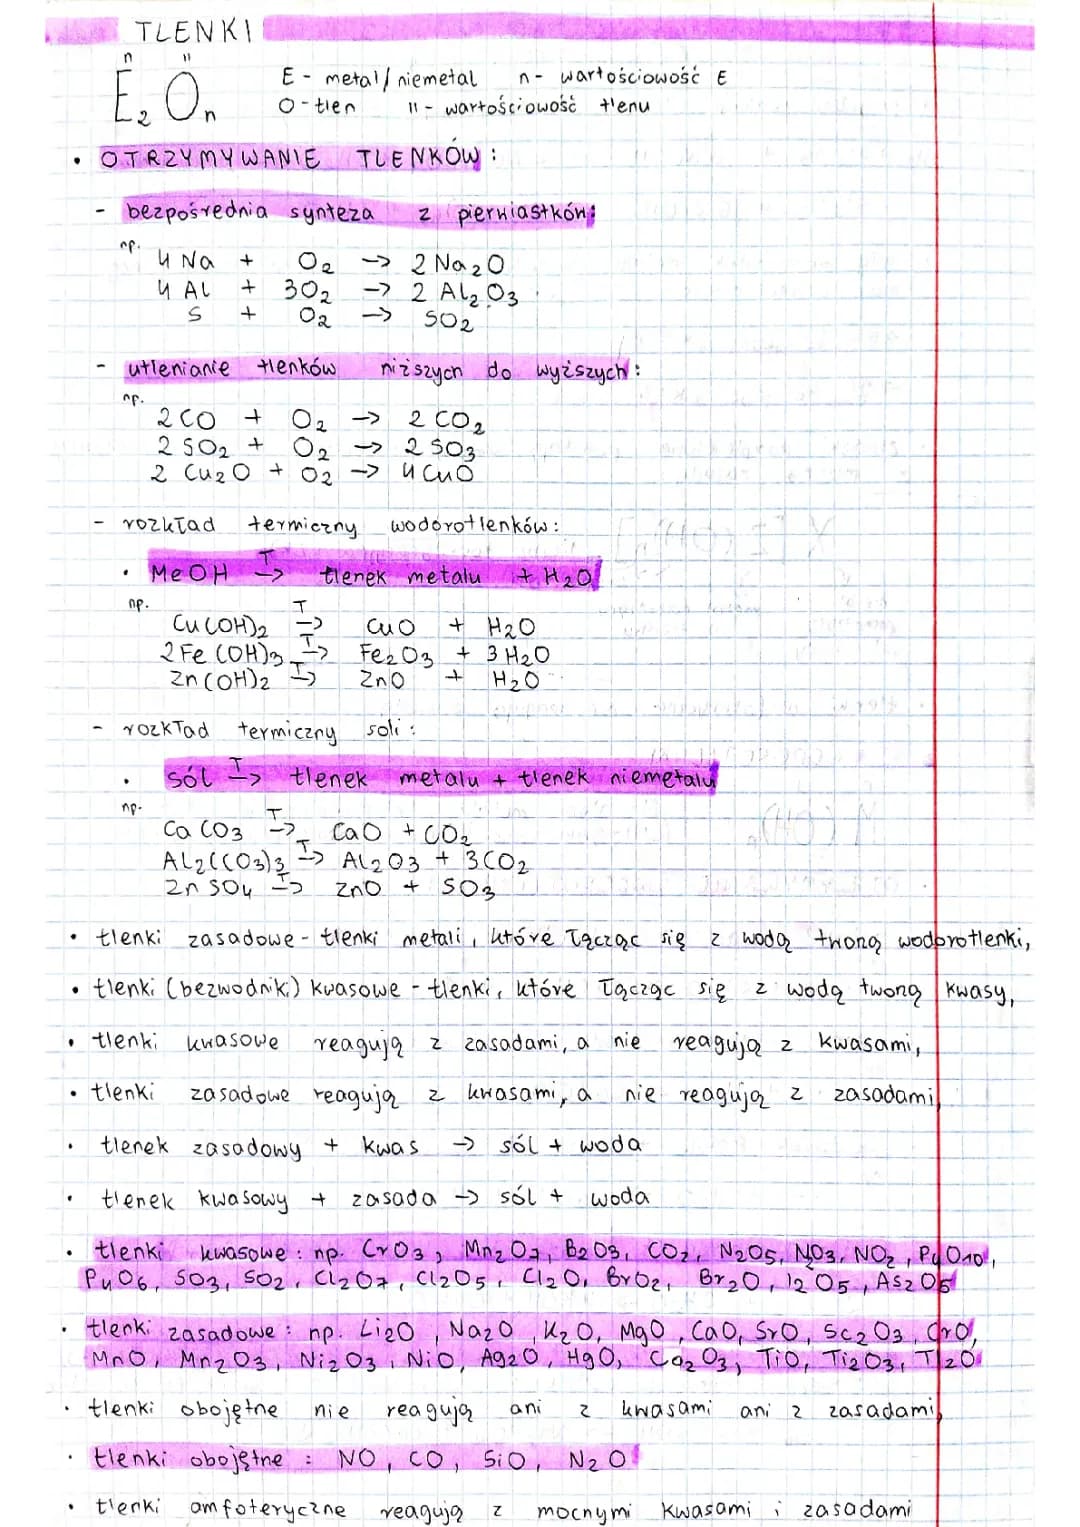 TLENKI
n II
E₂Oₙ E - metal/niemetal n - wartościowość E
O - tlen II - wartościowość tlenu
• OTRZYMYWANIE TLENKÓW:
- bezpośrednia synteza z pierwiastków:
np.
4 Na + O₂ -> 2 Na₂O
4 Al + 3O₂ -> 2 Al₂O₃
S + O₂ -> SO₂
- utlenianie tlenków niższych do wyższych:
np.
2 CO + O₂ -> 2 CO₂
2 SO₂ + O₂ -> 2 SO₃
2 Cu₂O + O₂ -> 4 CuO
- rozkład termiczny wodorotlenków:
• MeOH T-> tlenek metalu + H₂O
np.
Cu(OH)₂ T-> CuO + H₂O
2 Fe(OH)₃ T-> Fe₂O₃ + 3 H₂O
Zn(OH)₂ T-> ZnO + H₂O
- rozkład termiczny soli:
• sól T-> tlenek metalu + tlenek niemetalu
np.
CaCO₃ T-> CaO + CO₂
Al₂(CO₃)₃ T-> Al₂O₃ + 3CO₂
ZnSO₄ T-> ZnO + SO₃
• tlenki zasadowe - tlenki metali, które łącząc się z wodą tworzą wodorotlenki,
• tlenki (bezwodniki) kwasowe - tlenki, które łącząc się z wodą tworzą kwasy,
• tlenki kwasowe reagują z zasadami, a nie reagują z kwasami,
• tlenki zasadowe reagują z kwasami, a nie reagują z zasadami,
• tlenek zasadowy + kwas -> sól + woda
• tlenek kwasowy + zasada -> sól + woda
• tlenki kwasowe: np. CrO₃, Mn₂O₇, B₂O₃, CO₂, N₂O₅, NO₃, NO₂, P₄O₁₀,
P₄O₆, SO₃, SO₂, Cl₂O₇, Cl₂O₅, Cl₂O, BrO₂, Br₂O, I₂O₅, As₂O₅
• tlenki zasadowe: np. Li₂O, Na₂O, K₂O, MgO, CaO, SrO, Sc₂O₃, CrO,
MnO, Mn₂O₃, Ni₂O₃, NiO, Ag₂O, HgO, Co₂O₃, TiO, Ti₂O₃, Tl₂O
• tlenki obojętne nie reagują ani z kwasami ani z zasadami,
• tlenki obojętne: NO, CO, SiO, N₂O
• tlenki amfoteryczne reagują z mocnymi kwasami i zasadami